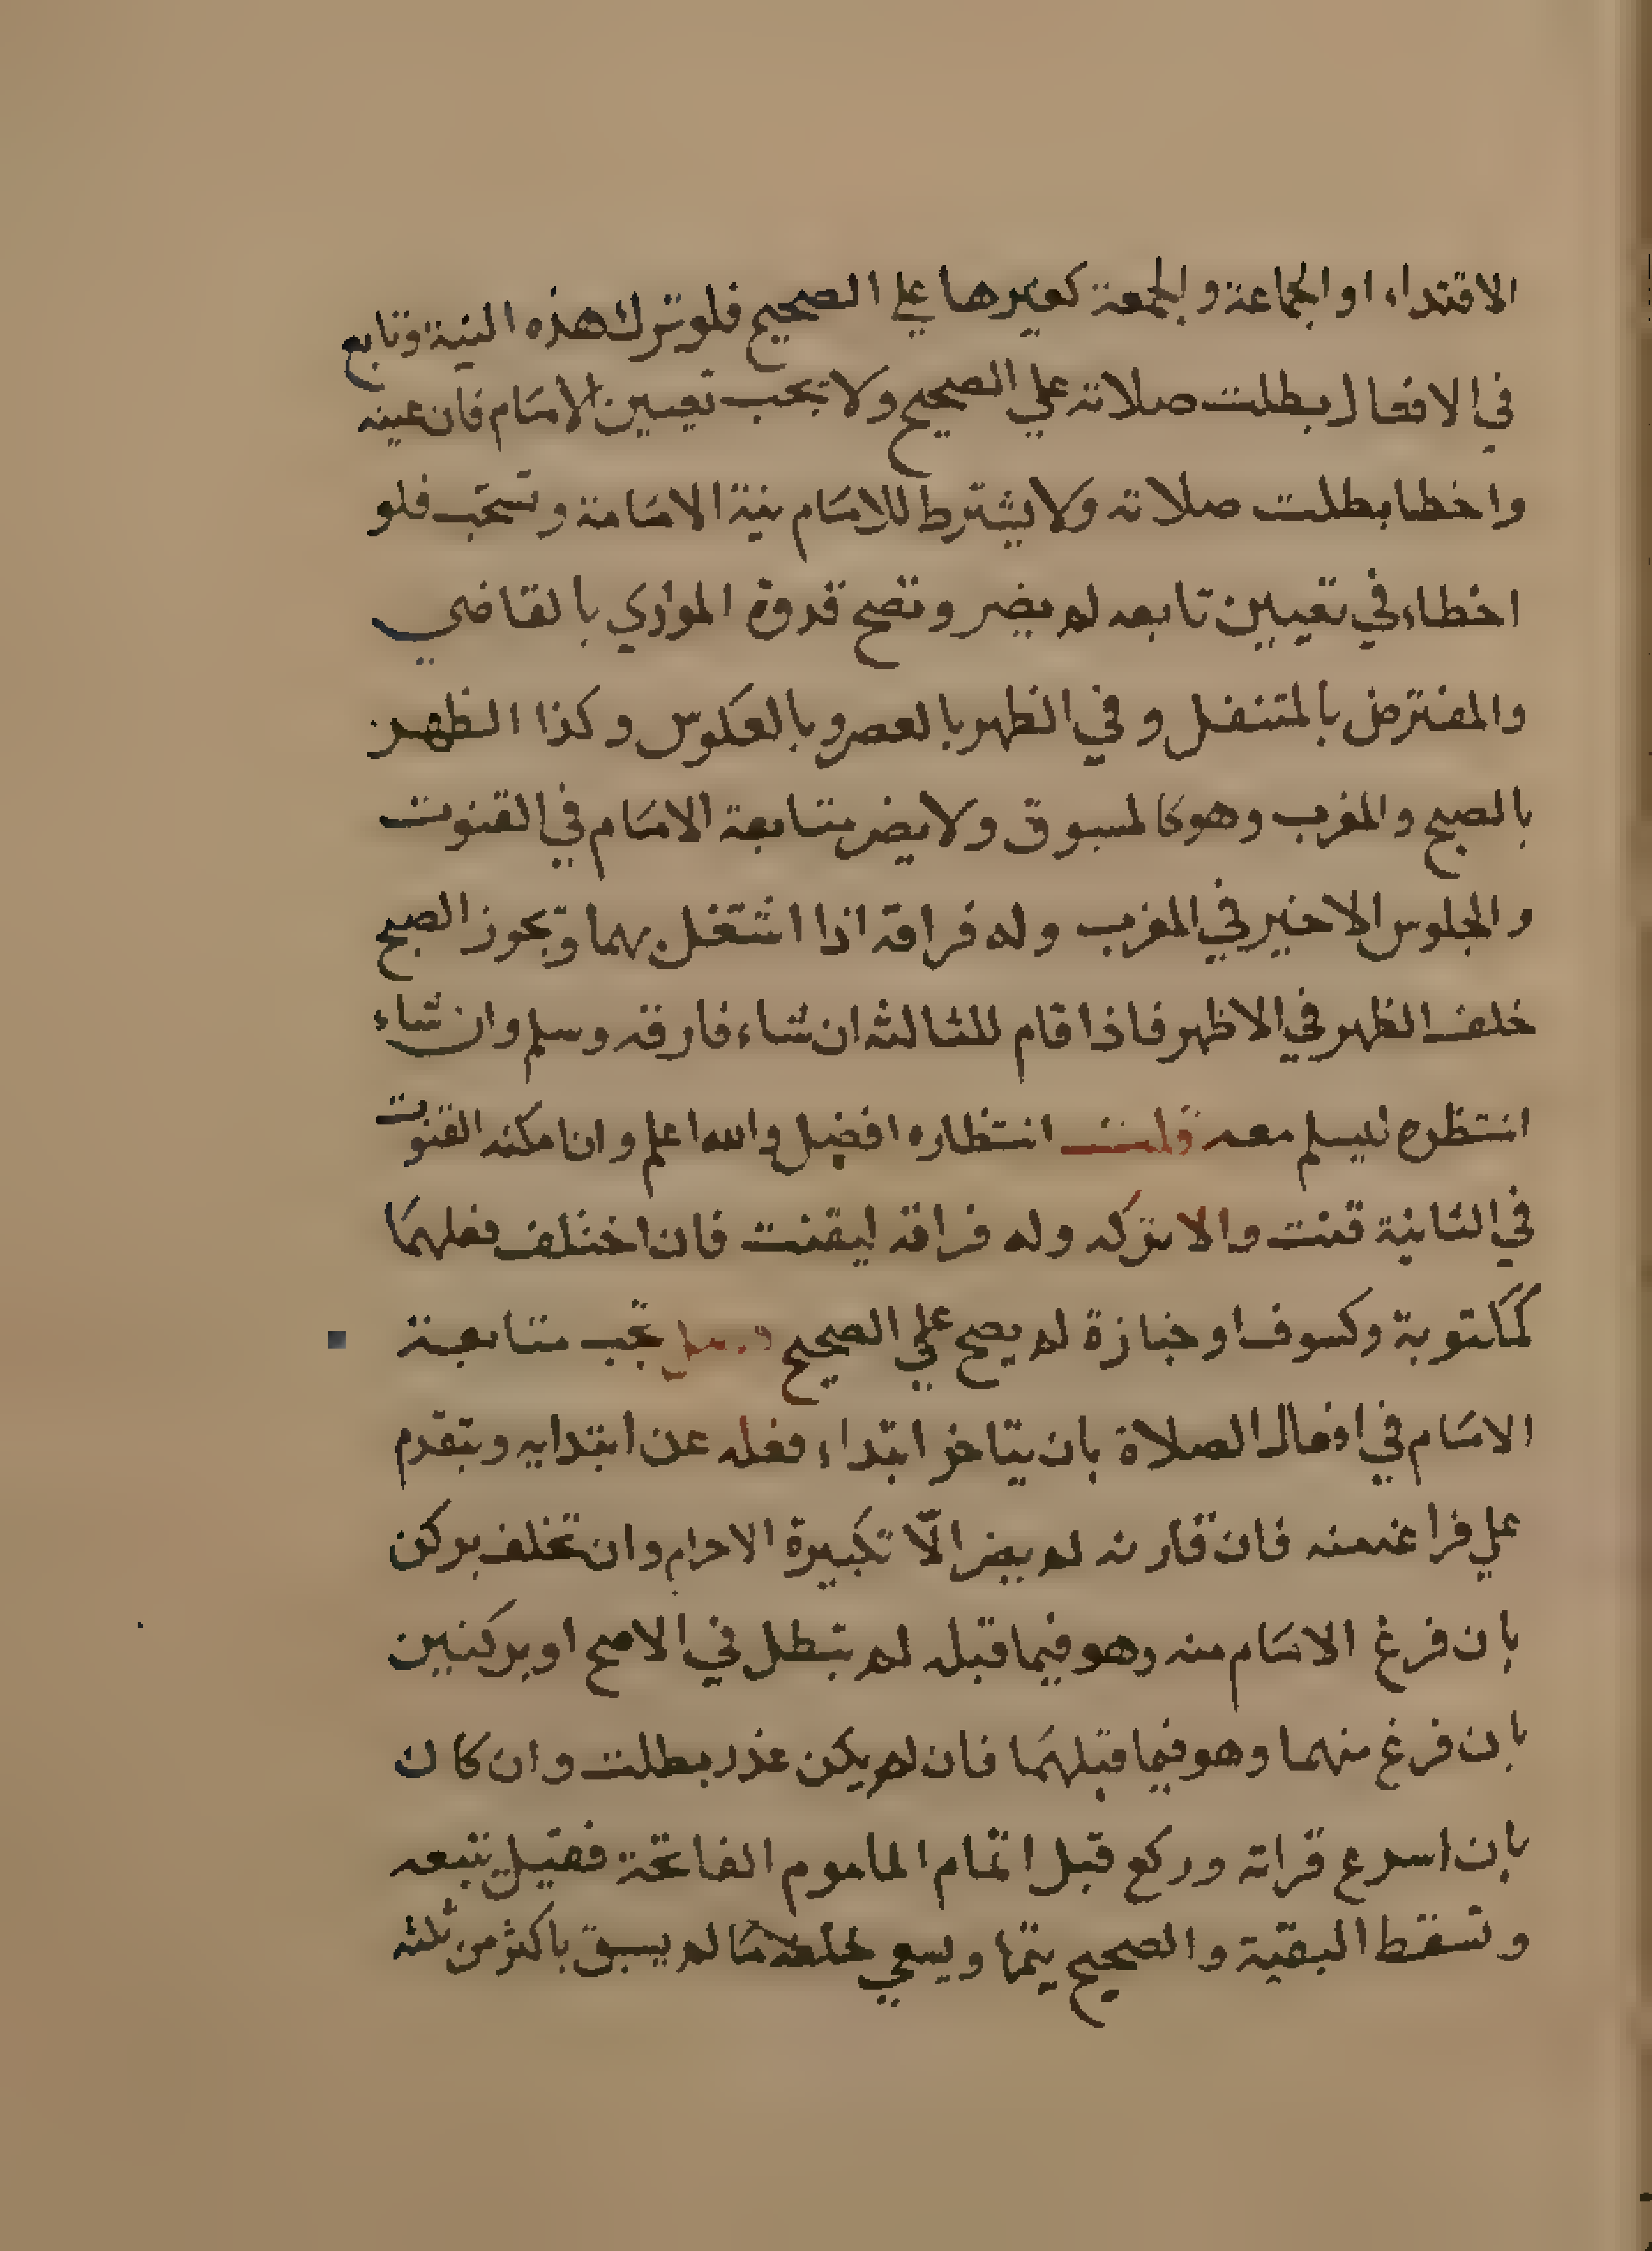 الاقتداء او الجماعة والجمعة كغيرها علي الصحيح فلو ترك هذه النية وتابع
في الافعال بطلت صلاته علي الصحيح ولا تجب تعيين الامام فان عينه
واخطا بطلت صلاته ولا يشترط للامام نية الامامة وتستحب فلو
اخطاء في تعيين تابعه لم يضر وتصح قدوة الموازي بالقاضي
والمفترض بالمتنفل وفي الظهر بالعصر وبالعكوس وكذا الظهر
بالصبح والمغرب وهو كالمسبوق ولا يضر متابعة الامام في القنوت
والجلوس الاخير في المغرب وله فراقه اذا اشتغل بهما وتجوز الصبح
خلف الظهر في الاظهر فاذا قام للثالثه ان شاء فارقه وسلم وان شاء
انتظره ليسلم معه قلت انتظاره افضل والله اعلم وان امكنه القنوت
في الثانية قنت والا تركه وله فراقه ليقنت فان اختلف فعلهما
كمكتوبة وكسوف او جنازة لم يصح علي الصحيح فصل تجب متابعة
الامام في افعال الصلاة بان يتاخر ابتداء فعله عن ابتدايه ويتقدم
علي فراغه منه فان قارنه لم يضر الّا تكبيرة الاحرام وان تخلف بركن
بان فرغ الامام منه وهو فيما قبله لم تبطل في الاصح او بركنين
بان فرغ منهما وهو فيما قبلهما فان لم يكن عذر بطلت وان كان
بان اسرع قراته وركع قبل اتمام الماموم الفاتحة فقيل يتبعه
وتسقط البقية والصحيح يتمها ويسعي خلفه ما لم يسبق باكثر من ثلثه